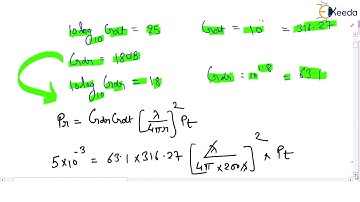 Ekeeda
10log₁₀ Gdt = 25    Gdt = 10    = 316.27
Gdr = 18dB
10log₁₀ Gdr = 18    Gdr = 10^1.8 = 63.1
Pr = Gdr Gdt [λ/4πr]² Pt
5×10⁻³ = 63.1 × 316.27 [λ/4π×200λ]² × Pt